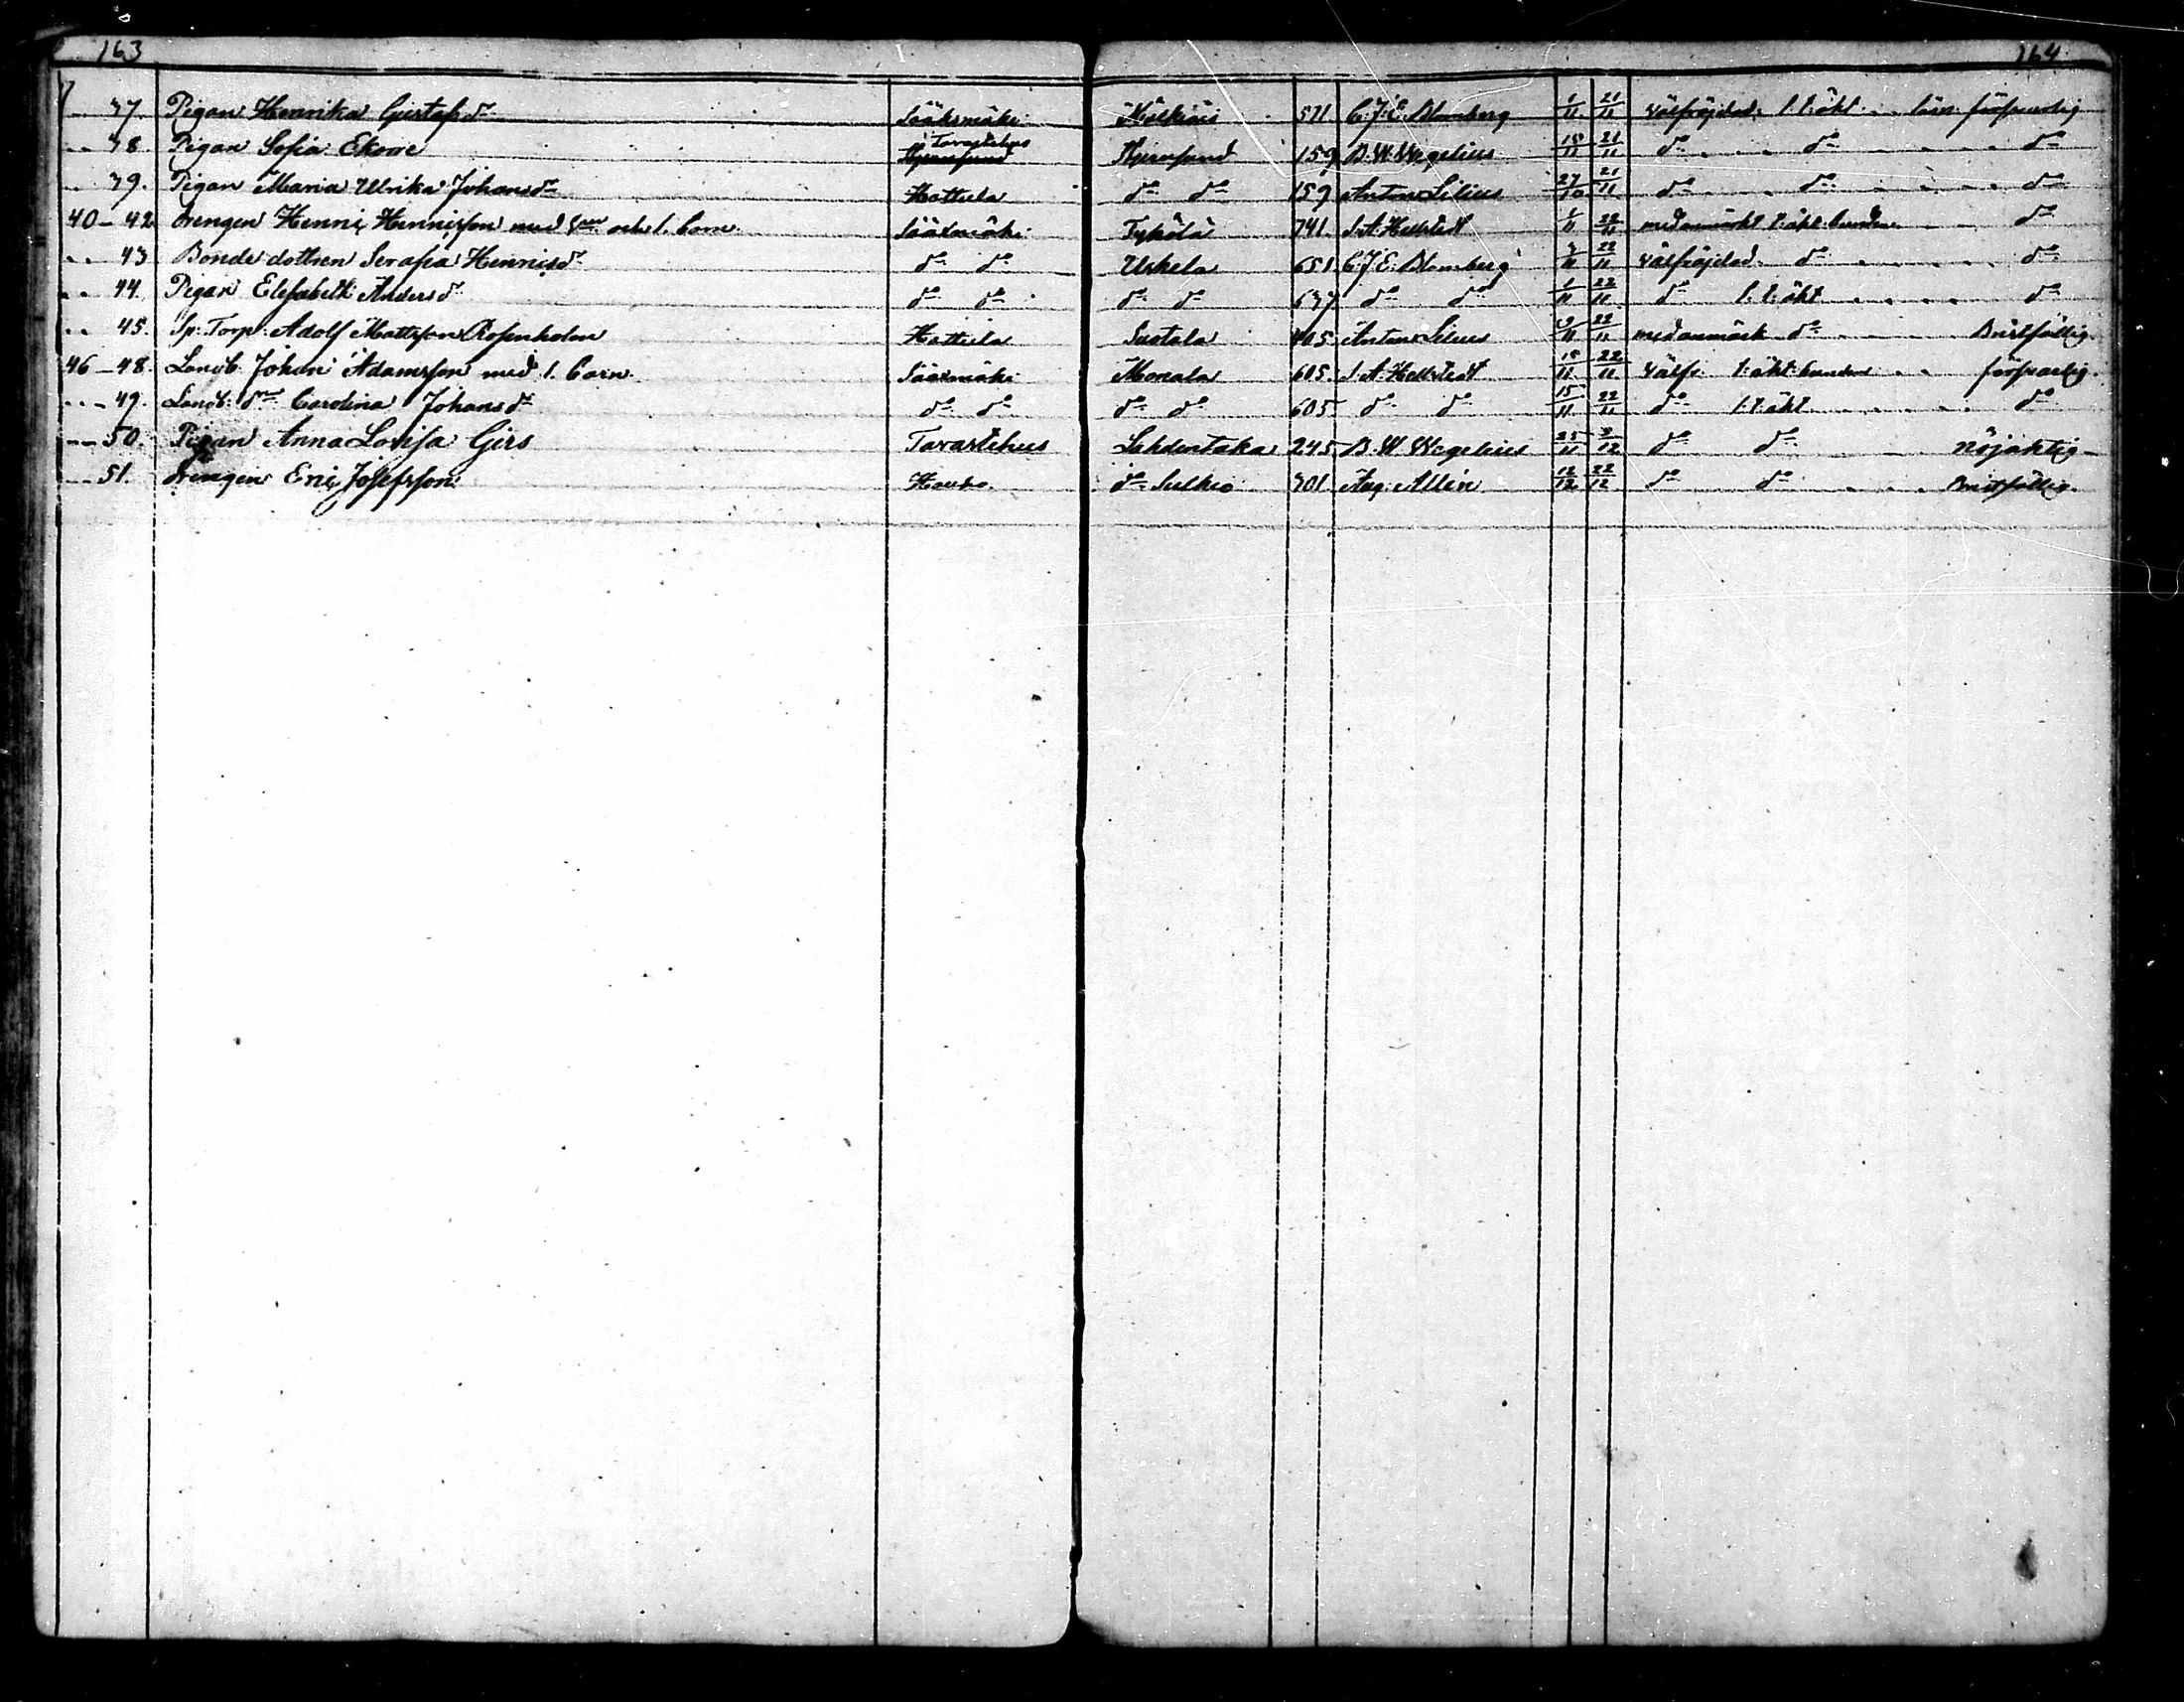 163
164
37. Pigan Henrika Gustafsdr Sääksmäki Mälkiäis 571 C. J. E. Blomberg 1/11 21/11 välfrejdad l. t. äkt. läsn. försvarlig
38 Pigan Sofia Ekorre Tavastehus Hjensfund 159 B. W. Wegelius 18/11 21/11 do do do
39. Pigan Maria Ulrika Johansdr Hattula do do 159 Anton Lilius 27/10 21/11 do do do
40-42 Drengen Henric Henricsson med och 1. barn Sääxmäki Tykölä 741. S. A. Hellstedt 22/11 med anmärkt l. äkt. bunden do
43 Bonde dottren Serafia Henricsdr do do Uskela 651 C. J. E. Blomberg 22/11 välfrejdad do do
44. Pigan Elisabeth Andersdr do do do do 637 do do 1/11 22/11 do l. t. äkt do
45. Sp. Torp. Adolf Mattsson Rosenholm Hattula Suotala 405 Anton Lilius 9/11 22/11 med anmärk do Bristfällig
46-48. Landb. Johan Adamsson med 1. barn Sääxmäki Monala 605. S. A. Hellstedt 15/11 22/11 Välfr. l. äkt. bunden försvarlig.
49. Landb. dr Carolina Johansdr do do do do 605 do do 15/11 22/11 do l. t. äkt do
50. Pigan Anna Lovisa Girs Tavastehus Lahdentaka 245 B. W. Wegelius 25/11 9/12 do do nöjaktig
51. Drengen Eric Josefsson Hauho do Sulkio 301 Aug. Allén 12/12 22/12 do do Bristfällig.